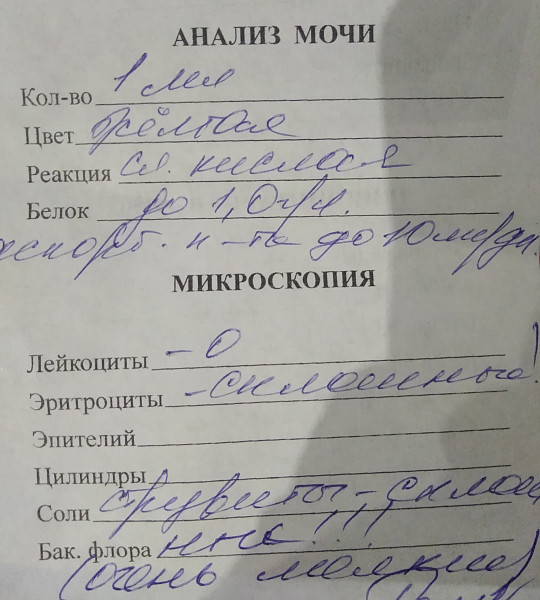 АНАЛИЗ МОЧИ
Кол-во 1 мл
Цвет жёлтая
Реакция сл. кислая
Белок до 1,0 г/л.
аскорб. к-та до 10 мг/дл
МИКРОСКОПИЯ
Лейкоциты - 0
Эритроциты - сплошные!
Эпителий
Цилиндры
Соли струвиты - сплош
Бак. флора !!!
(очень мелкие)